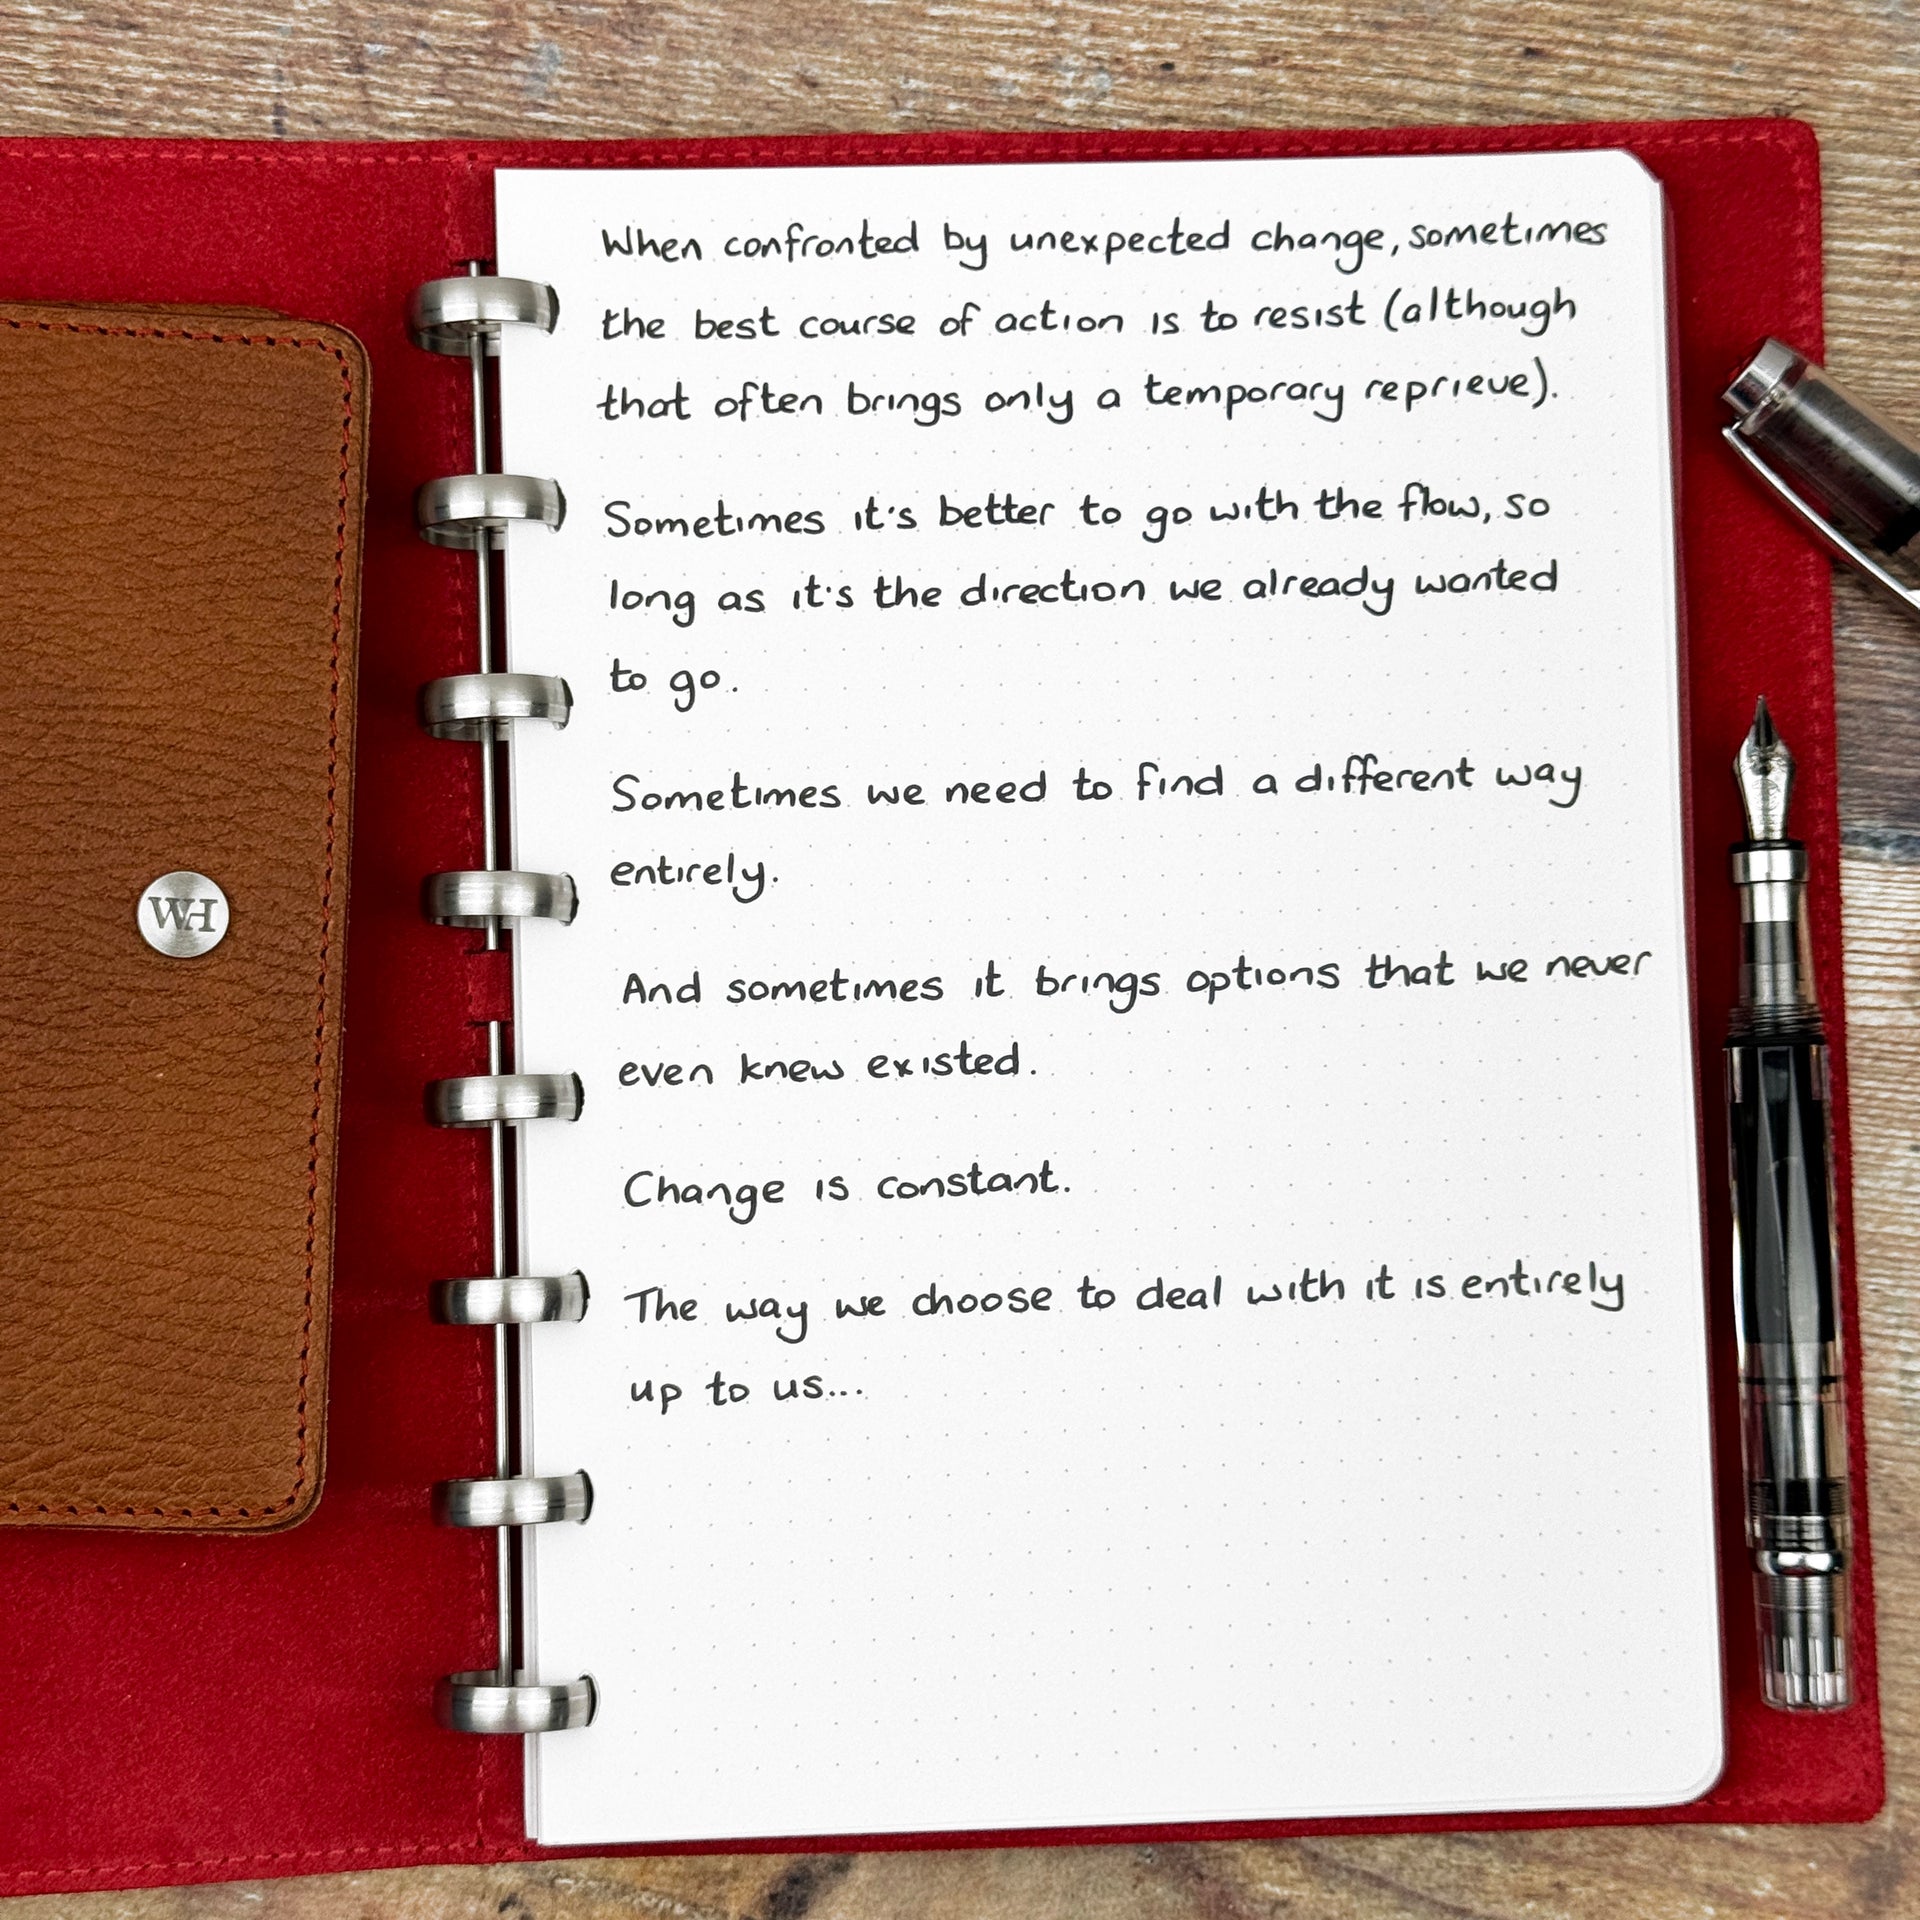 When confronted by unexpected change, sometimes
the best course of action is to resist (although
that often brings only a temporary reprieve).
Sometimes it's better to go with the flow, so
long as it's the direction we already wanted
to go.
Sometimes we need to find a different way
entirely.
And sometimes it brings options that we never
even knew existed.
Change is constant.
The way we choose to deal with it is entirely
up to us...
WH